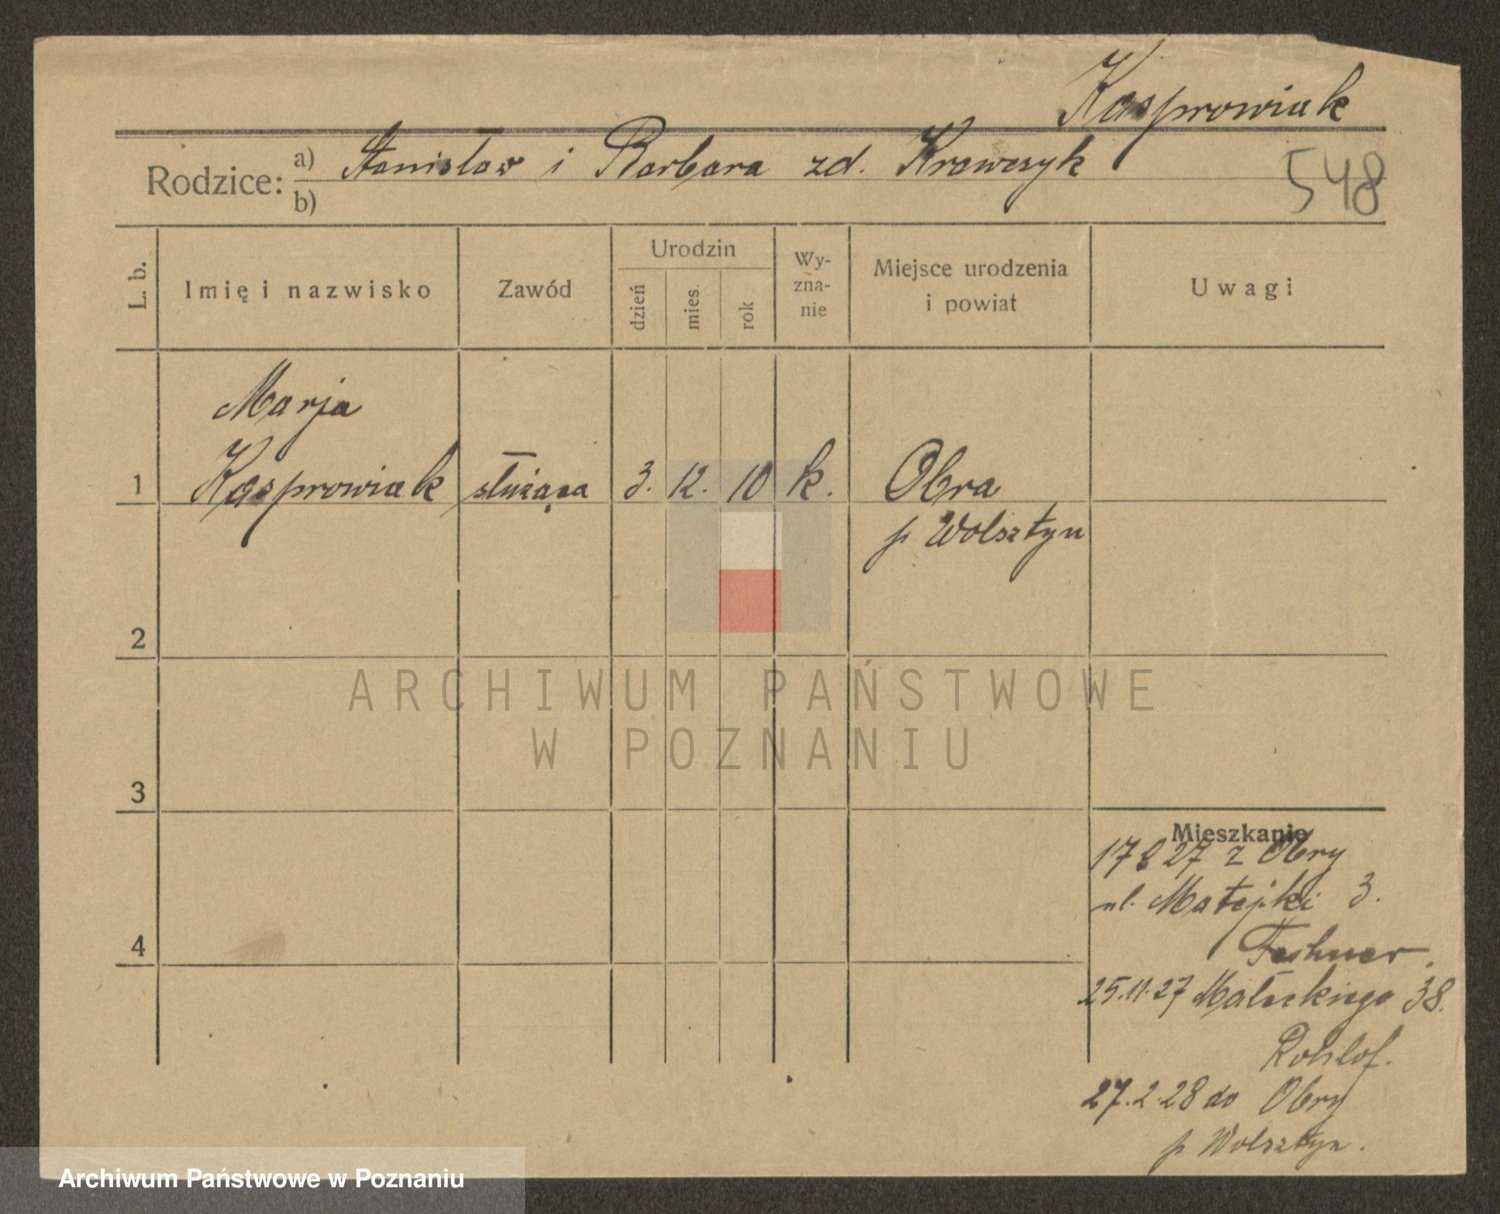 Kasprowiak
Rodzice: a) Stanisław i Barbara zd. Krawczyk
b)
548
L. b. Imię i nazwisko Zawód Urodzin dzień mies. rok Wyznanie Miejsce urodzenia i powiat Uwagi
Marja
1 Kasprowiak służąca 3. 12. 10 k. Obra
p Wolsztyn
2
ARCHIWUM PAŃSTWOWE
W POZNANIU
3
Mieszkanie
17 8 27 z Obry
ul. Matejki 3.
4
25.11.27 Małeckiego 38.
27.2.28 do Obry
p Wolsztyn.
Archiwum Państwowe w Poznaniu